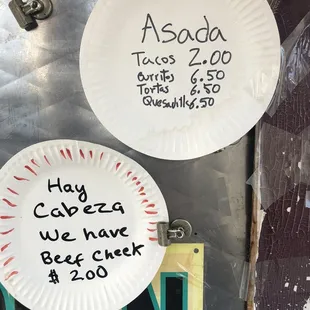 Asada
Tacos 2.00
Burritos 6.50
Tortas 6.50
Quesadilla 6.50
Hay
Cabeza
We have
Beef Cheek
$ 2.00